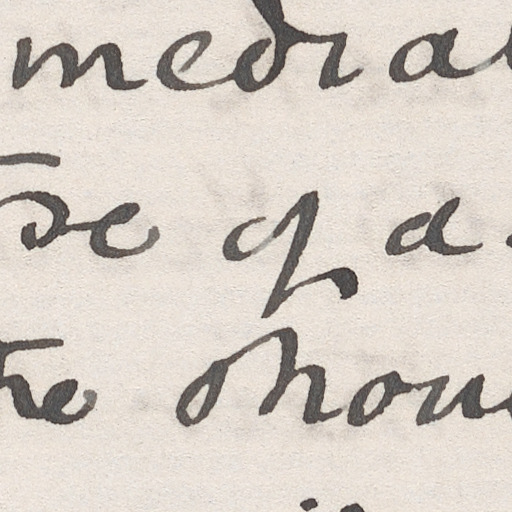 media
se of a
the shou